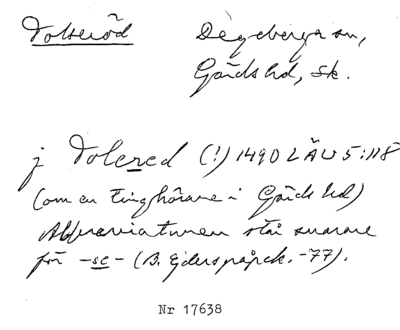 Tolseröd Degeberga sn,
Gärds hd, Sk.
j Tolered (!) 1490 LÄU 5:118
(om en tinghörare i Gärds hd)
Abbreviaturen står snarare
för -se- (B. Ejder -77).
Nr 17638